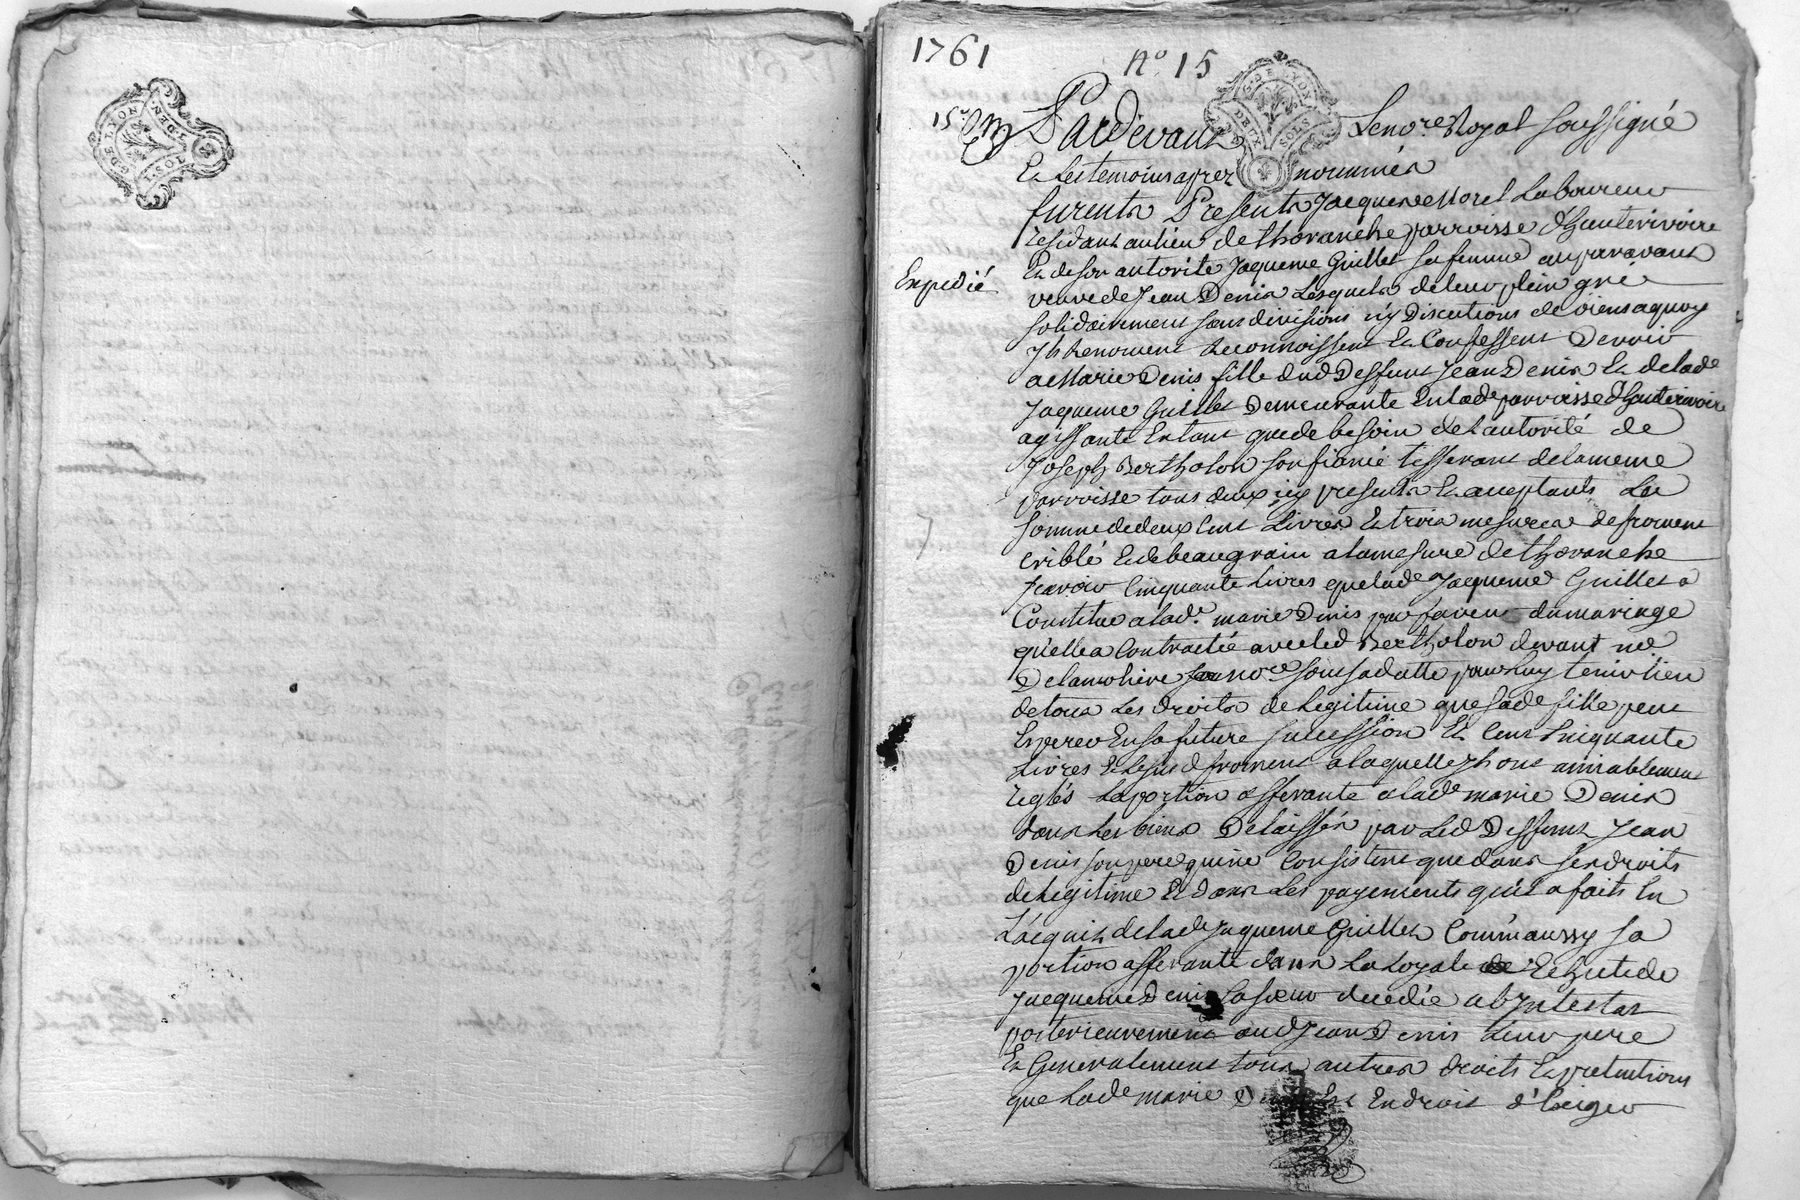 G. DE LYON
1761
nº 15
G. DE LYON
DEUX SOLS
15 Pardevant Le no.re Royal soussigné
Et les temoins aprez nommés
furents Presents Jacques Morel Laboureur
residant au lieu de thoranche parroisse d'hauterivoire
Expedié
Et de son autorité Jaqueme Guillet sa femme auparavant
veuve de Jean Denis Lesquels de leur plein gré
solidairement sans divisions ny Discutions de biens aquoy
Ils Renoncent Reconnoissent Et Confessent Devoir
a Marie Denis fille dud Deffunt Jean Denis Et de lade
Jaqueme Guillet Demeurante En lade parroisse d'hauterivoire
agissante En tant que de besoin de L'autorité de
Joseph Bertholon son fiancé tisserant de la meme
parroisse tous deux icy presents Et acceptants La
somme de deux Cent Livres Et trois mesures de froment
criblé Et de beau grain a la mesure de thoranche
scavoir Cinquante Livres que lade Jaqueme Guillet a
Constitué a lade. marie Denis par faveur du mariage
qu'elle a Contracté avec led Bertholon devant me
Delamoliere no.re sous sa datte pour luy tenir lieu
de tous Les droits de Legitime que sade fille peut
Esperer En sa future succession Et Cent Cinquante
Livres Et led froment a laquelle Ils ont amiablement
reglés La portion afferante a lade marie Denis
dans Les biens Delaissés par Led Deffunt Jean
Denis son pere qui ne Consistent que dans ses droits
de Legitime Et dans Les payements qu'il a faits En
L'acquit de lade Jaqueme Guillet Comm'aussy sa
portion afferante dans La Loyale de
Jacqueme Denis sa sœur decedée ab Intestat
posterieurement aud Jean Denis Leur pere
Et Generalement tous autres droits Et pretentions
que Lade marie Denis Est En droit d'Exiger